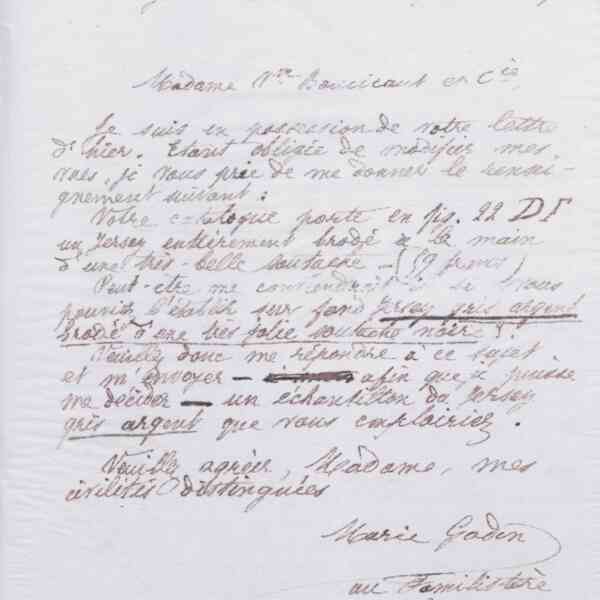 Madame Vve Boucicaut et Cie,
Je suis en possession de votre lettre
d'hier. Etant obligée de modifier mes
vues, je vous prie de me donner le rensei-
gnement suivant :
Votre catalogue porte en fig. 22
un Jersey entièrement brodé à la main
d'une très-belle soutache - (59 francs)
Peut-être me conviendrait-il si vous
pouviez l'établir sur fond Jersey gris argent
brodé d'une très jolie soutache noire ?
Veuillez donc me répondre à ce sujet
et m'envoyer — afin que je puisse
me décider — un échantillon du Jersey
gris argent que vous emploiriez.
Veuillez agréer, Madame, mes
civilités distinguées
Marie Godin
au Familistère